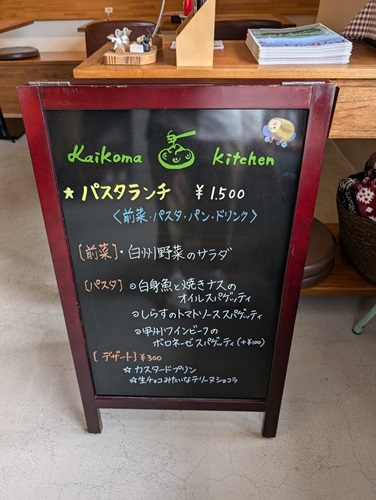 Kaikoma kitchen
★パスタランチ ¥1.500
〈前菜・パスタ・パン・ドリンク〉
[前菜]・白州野菜のサラダ
[パスタ] ◎白身魚と焼きナスの
オイルスパゲッティ
◎しらすのトマトソーススパゲッティ
◎甲州ワインビーフの
ボロネーゼスパゲッティ(+¥100)
[デザート]¥300
☆カスタードプリン
☆生チョコみたいなテリーヌショコラ